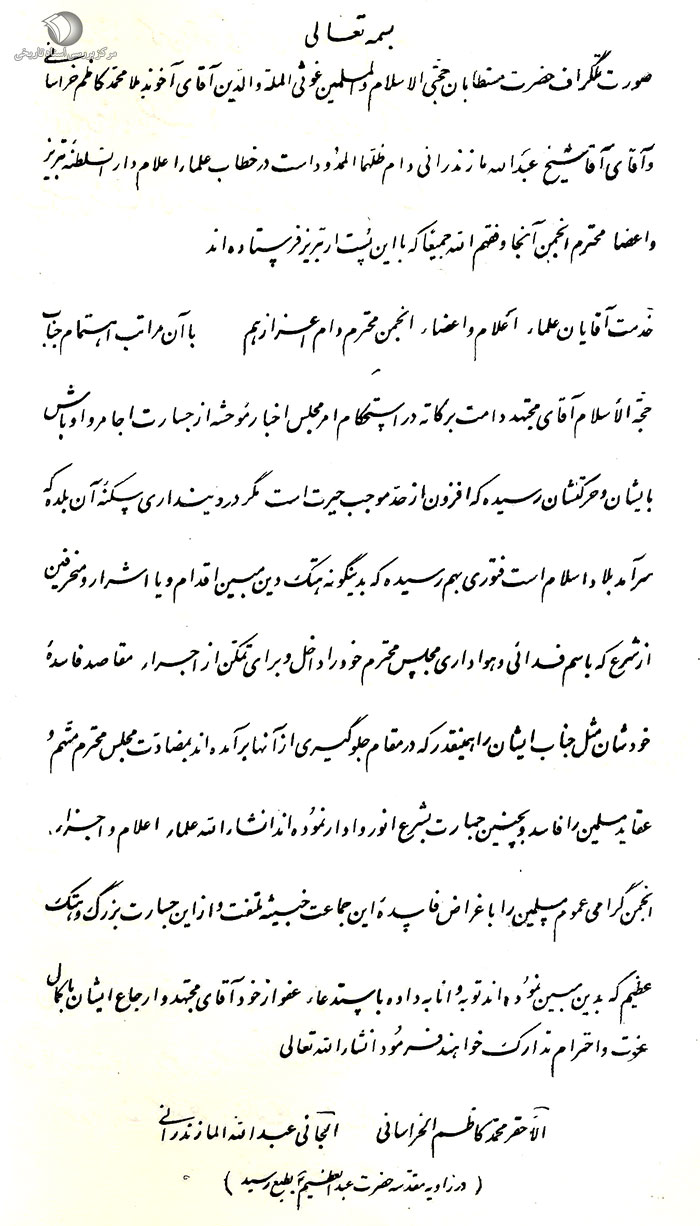 مرکز بررسی اسناد تاریخی
بسمه تعالی
صورت تلگراف حضرت مستطابان حجتی الاسلام والمسلمین غوثی الملة والدین آقای آخوند ملا محمد کاظم خراسانی
و آقای آقا شیخ عبدالله مازندرانی دام ظلهما الممدود است در خطاب علماء اعلام دارالسلطنه تبریز
و اعضا محترم انجمن آنجا وفقهم الله جمیعًا که با این پُست از تبریز فرستاده اند
خدمت آقایان علماء أعلام و اعضاء انجمن محترم دام اعزازهم با آن مراتب اهتمام جناب
حجة الأسلام آقای مجتهد دامت برکاته در استحکام امر مجلس اخبار مُوحشه از جسارت اجامر و اوباش
بایشان و حرکتشان رسیده که افزون از حدّ موجب حیرت است مگر در دینداری سکنهٔ آن بلده که
سرآمد بلاد اسلام است فتوری بهم رسیده که بدینگونه هتک دین مبین اقدام و یا اشرار و منحرفین
از شرع که باسم فدائی و هواداری مجلس محترم خود را داخل و برای تمکّن از اجراء مقاصد فاسدهٔ
خودشان مثل جناب ایشان را همینقدر که در مقام جلوگیری از آنها برآمده اند بمضادّت مجلس محترم متّهم و
عقاید مسلمین را فاسد و بچنین جسارت بشرع انور وادار نمُوده اند انشاء الله علماء اعلام و اجزاء
انجمن گرامی عموم مسلمین را باغراض فاسدهٔ این جماعت خبیثه ملتفت و از این جسارت بزرگ و هتک
عظیم که بدین مبین نمُوده اند توبه و انابه داده باستدعاء عفو از خود آقای مجتهد و ارجاع ایشان با کمال
عزت و احترام تدارک خواهند فرمُود انشاء الله تعالی
الأحقر محمد کاظم الخراسانی الجانی عبدالله المازندرانی
( در زاویه مقدسه حضرت عبدالعظیم بطبع رسید )